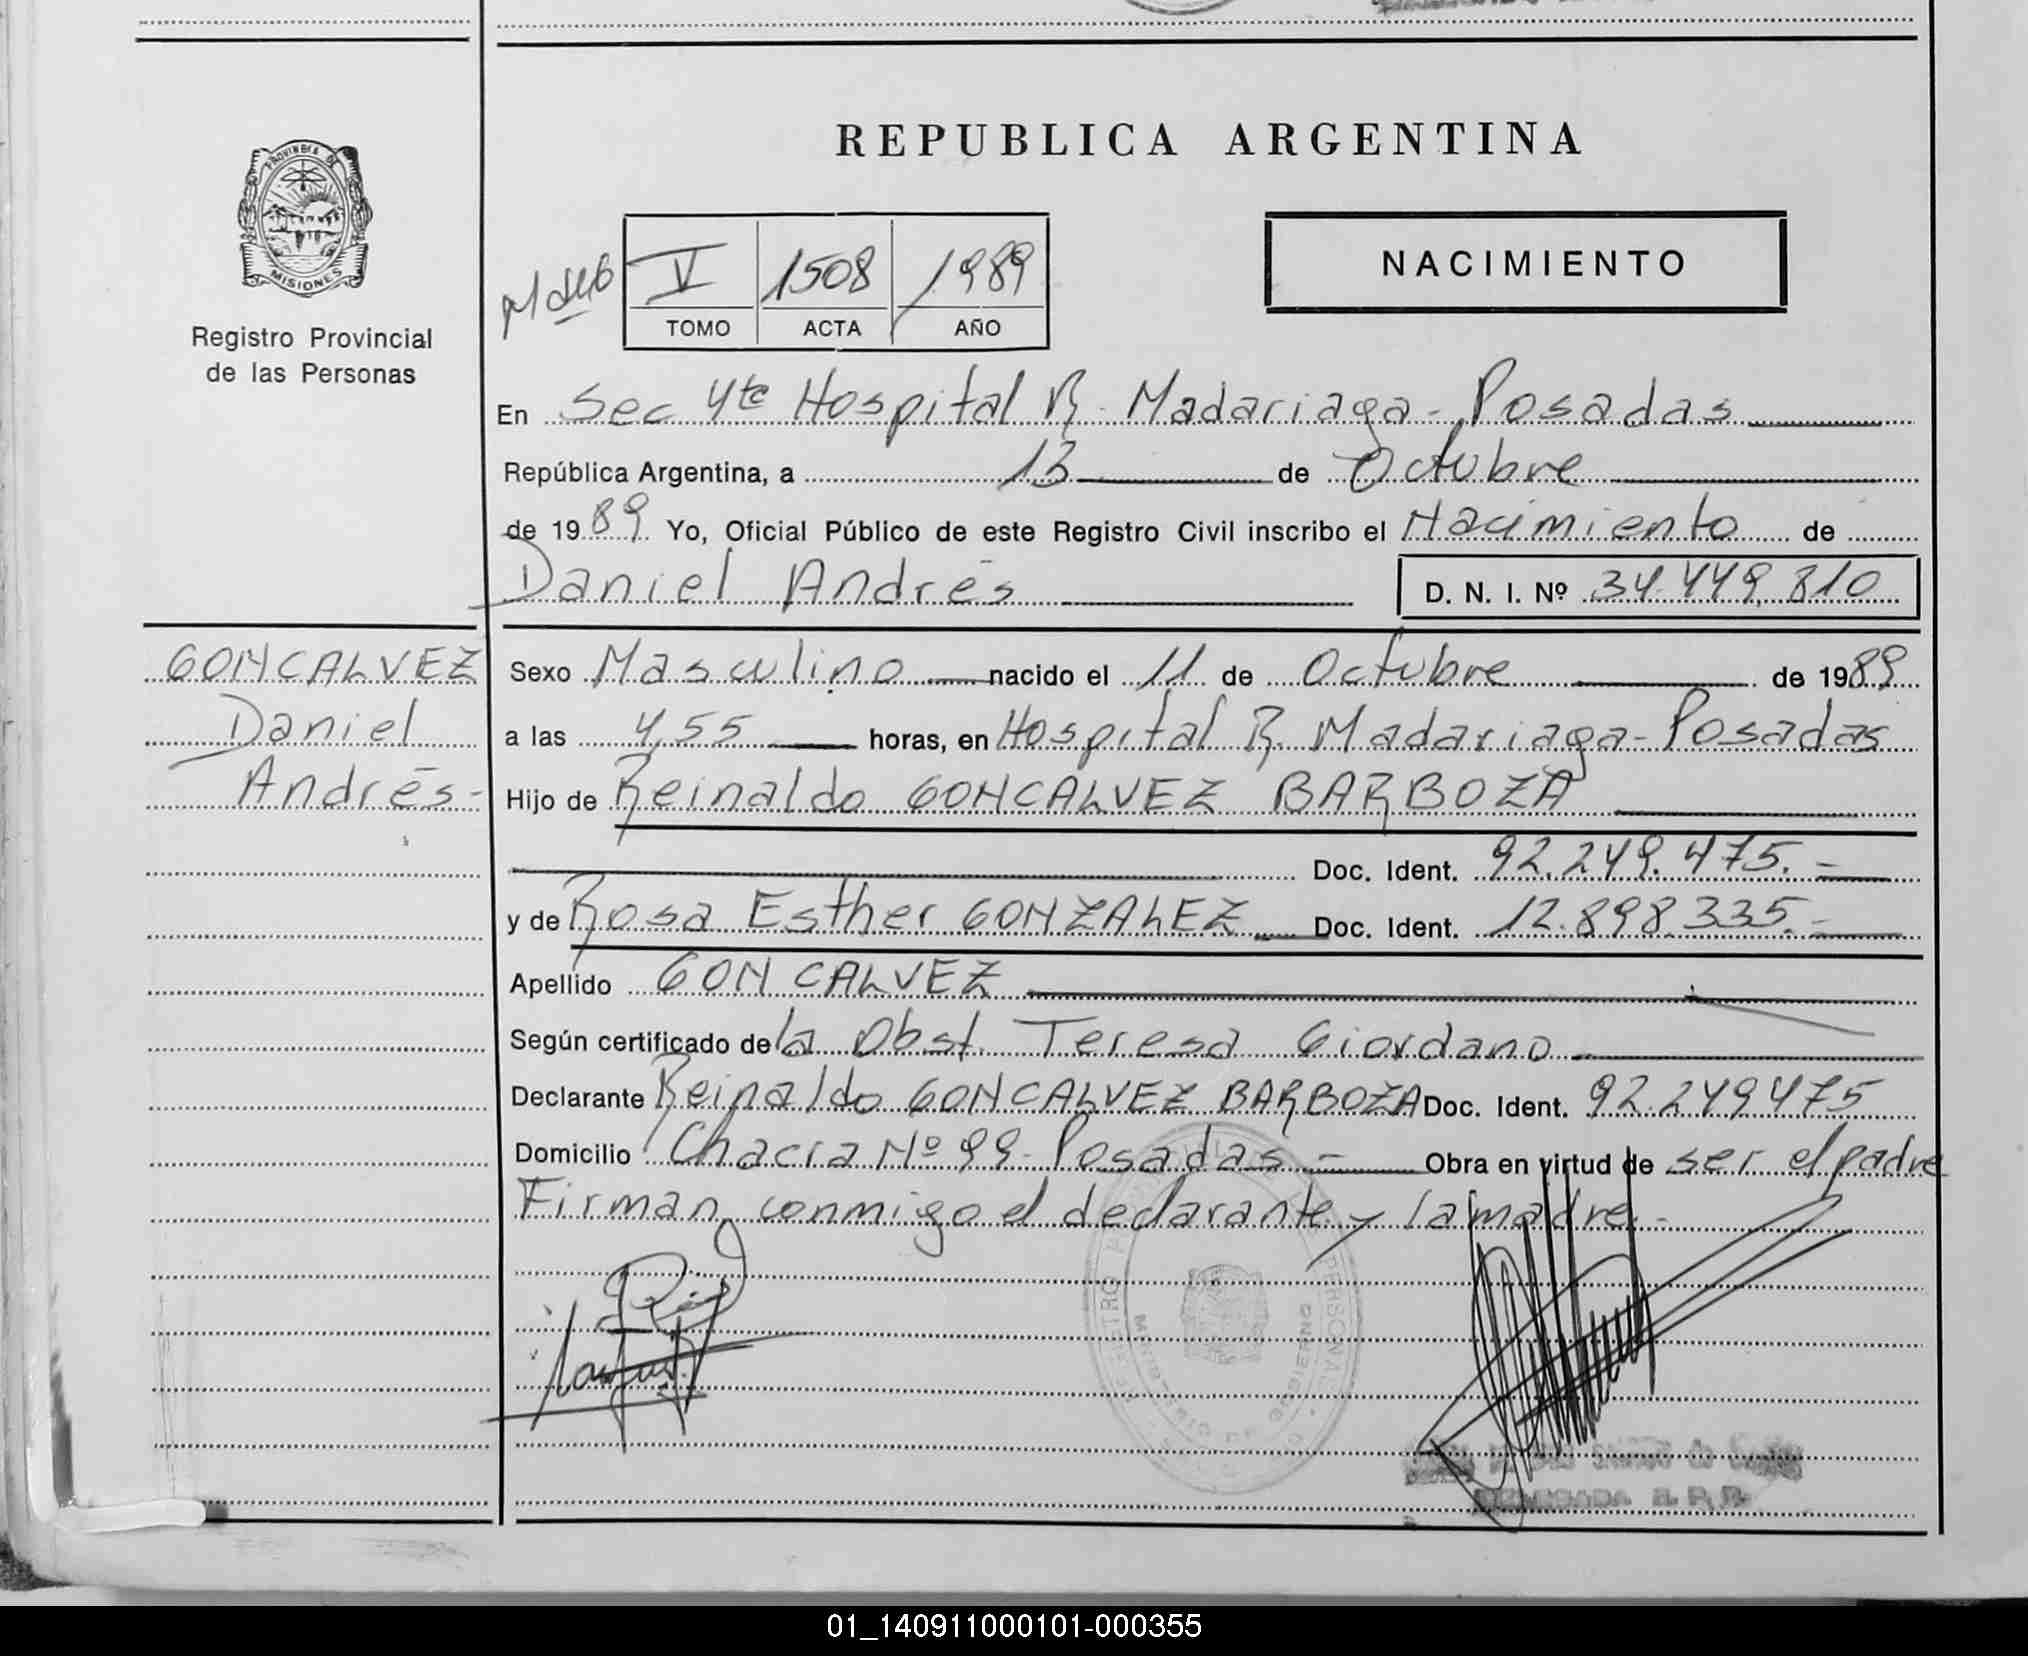 REPUBLICA ARGENTINA
PROVINCIA DE
MISIONES
Registro Provincial
de las Personas
V 1508 1989
TOMO ACTA AÑO
NACIMIENTO
En Sec 4te Hospital R. Madariaga - Posadas
República Argentina, a 13 de Octubre
de 1989 Yo, Oficial Público de este Registro Civil inscribo el Nacimiento de
Daniel Andrés D. N. I. Nº 34.449.810
GONCALVEZ
Daniel
Andrés-
Sexo Masculino nacido el 11 de Octubre de 1989
a las 4,55 horas, en Hospital R. Madariaga - Posadas
Hijo de Reinaldo GONCALVEZ BARBOZA
Doc. Ident. 92.249.475.-
y de Rosa Esther GONZALEZ Doc. Ident. 12.898.335.-
Apellido GONCALVEZ
Según certificado de la Obst. Teresa Giordano
Declarante Reinaldo GONCALVEZ BARBOZA Doc. Ident. 92.249475
Domicilio Chacra Nº 99 - Posadas - Obra en virtud de ser el padre
Firman conmigo el declarante y la madre.-
01_140911000101-000355